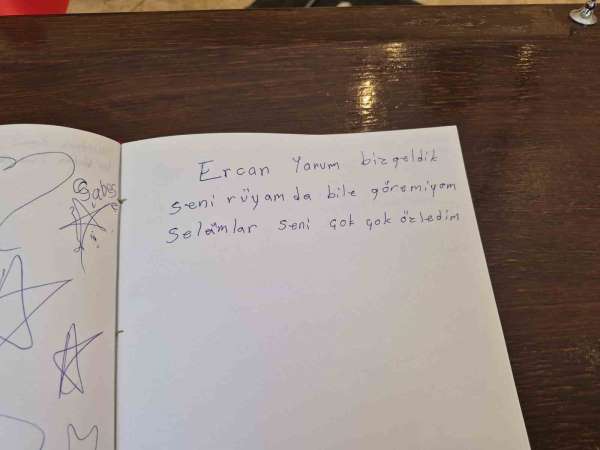 Ercan Yarım biz geldik
seni rüyam da bile göremiyom
Selâmlar seni çok çok özledim